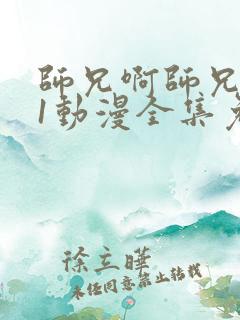 師兄啊師兄
1動漫全集
徐立華
未經同意禁止轉載